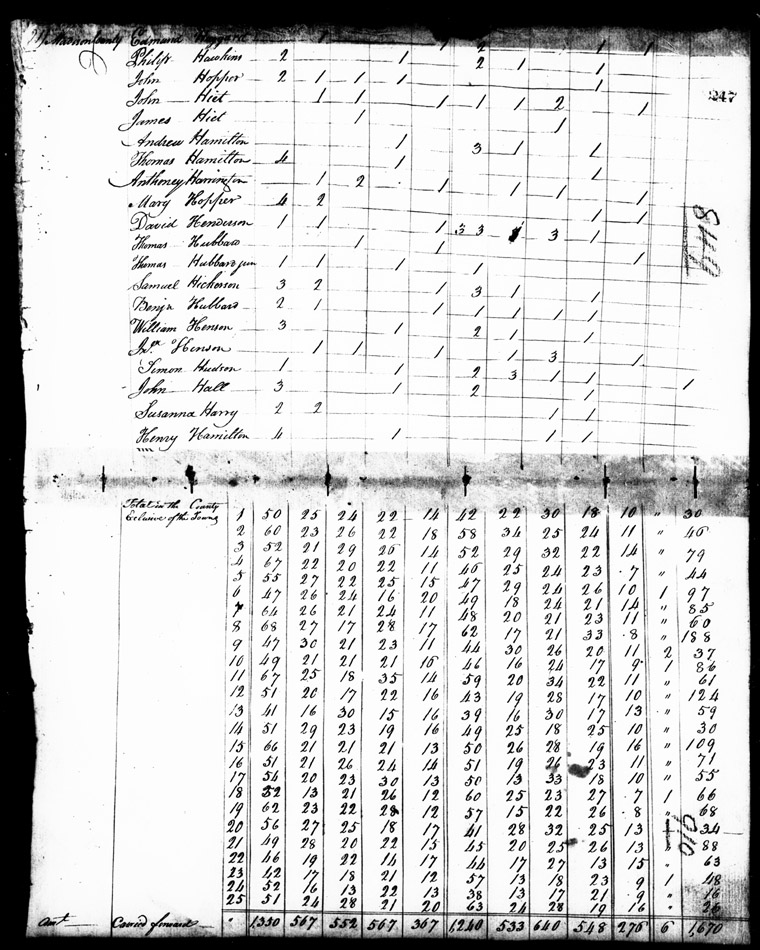 Edmund
Philip Hawkins 2 1 2 1 1
John Hopper 2 1 1 1 1
John Hiet 1 1 1 1 1 2 1
247
James Hiet 1 1
Andrew Hamilton 1 3 1 1
Thomas Hamilton 4 1
Anthoney Harrington 1 2 1 1 1 1
Mary Hopper 4 2 1 1
David Henderson 1 1 1 3 3 1 3 1
Thomas Hubbard 1 1
Thomas Hubbard jun 1 1 1 1 1
Samuel Hickerson 3 2 1 3 1 1
Benjn Hubbard 2 1 1 1 1 1 1
William Henson 3 1 2 1 1
Henson 1 1 1 1 3 1
Simon Hudson 1 1 2 3 1 1
John Hall 3 1 2 1 1
Susanna Harry 2 2 1 1
Henry Hamilton 4 1 1 1
Total in the County
Exclusive of the Towns 1 50 25 24 22 14 42 22 30 18 10 " 30
2 60 23 26 22 18 58 34 25 24 11 " 46
3 52 21 29 26 14 52 29 32 22 14 " 79
4 67 22 20 22 11 46 25 24 23 7 " 44
5 55 27 22 25 15 47 29 24 26 10 1 97
6 47 26 24 16 20 49 18 24 21 14 " 85
7 64 26 21 24 11 48 20 21 23 11 " 60
8 68 27 17 28 17 62 17 21 33 8 " 188
9 47 30 21 23 11 44 30 26 20 11 2 37
10 49 21 21 21 16 46 16 24 17 9 1 86
11 67 25 18 35 14 59 20 34 22 11 " 61
12 51 20 17 22 16 43 19 28 17 10 " 124
13 41 16 30 15 16 39 16 30 17 13 " 59
14 51 29 23 19 16 49 25 18 25 10 " 30
15 66 21 21 21 13 50 26 28 19 16 " 109
16 51 21 26 24 14 51 19 26 23 11 " 71
17 54 20 23 30 13 50 13 33 18 10 " 55
18 52 13 21 26 12 60 25 23 27 7 1 66
19 62 23 22 28 12 57 15 22 26 8 " 68
20 56 27 25 18 17 41 28 32 25 13 34
21 49 28 20 22 15 45 20 25 26 13 88
22 46 19 22 14 17 44 17 27 13 15 " 63
23 42 17 18 21 12 57 13 18 23 9 1 48
24 52 16 13 22 13 38 13 17 21 9 " 16
25 51 24 28 21 20 63 24 28 19 16 " 26
amt Carried forward " 1330 567 552 567 367 1240 533 640 548 276 6 1,670